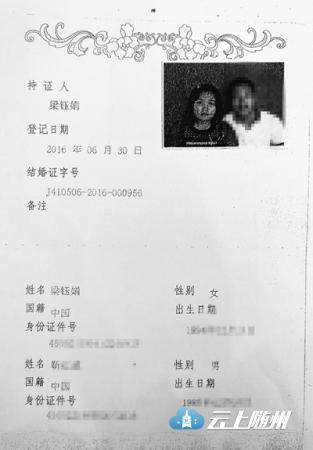 持证人
梁钰娟
登记日期
2016 年 06 月 30 日
结婚证字号
J410506-2016-000956
备注
姓名 梁钰娟 性别 女
国籍 中国 出生日期
身份证件号
姓名 靳 性别 男
国籍 中国 出生日期
身份证件号
云上随州